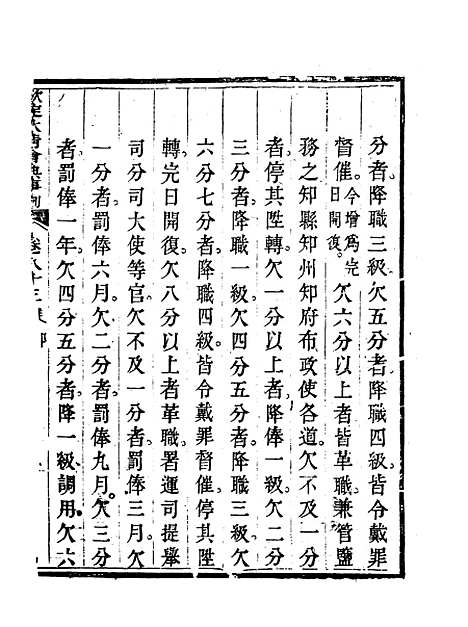 分者降職三級。欠五分者降職四級。皆令戴罪
督催。今增爲完日開復。欠六分以上者皆革職。兼管鹽
務之知縣知州知府布政使各道。欠不及一分
者停其陞轉。欠一分者降俸一級。欠二分
三分者降職一級。欠四分五分者降職三級。欠
六分七分者降職四級。皆令戴罪督催。停其陞
轉。完日開復。欠八分以上者革職。署運司提舉
司分司大使等官。欠不及一分者罰俸三月。欠
一分者罰俸六月。欠二分者罰俸九月。欠三分
者罰俸一年。欠四分五分者。降一級調用。欠六
欽定大清會典事例 卷八十三 吏部